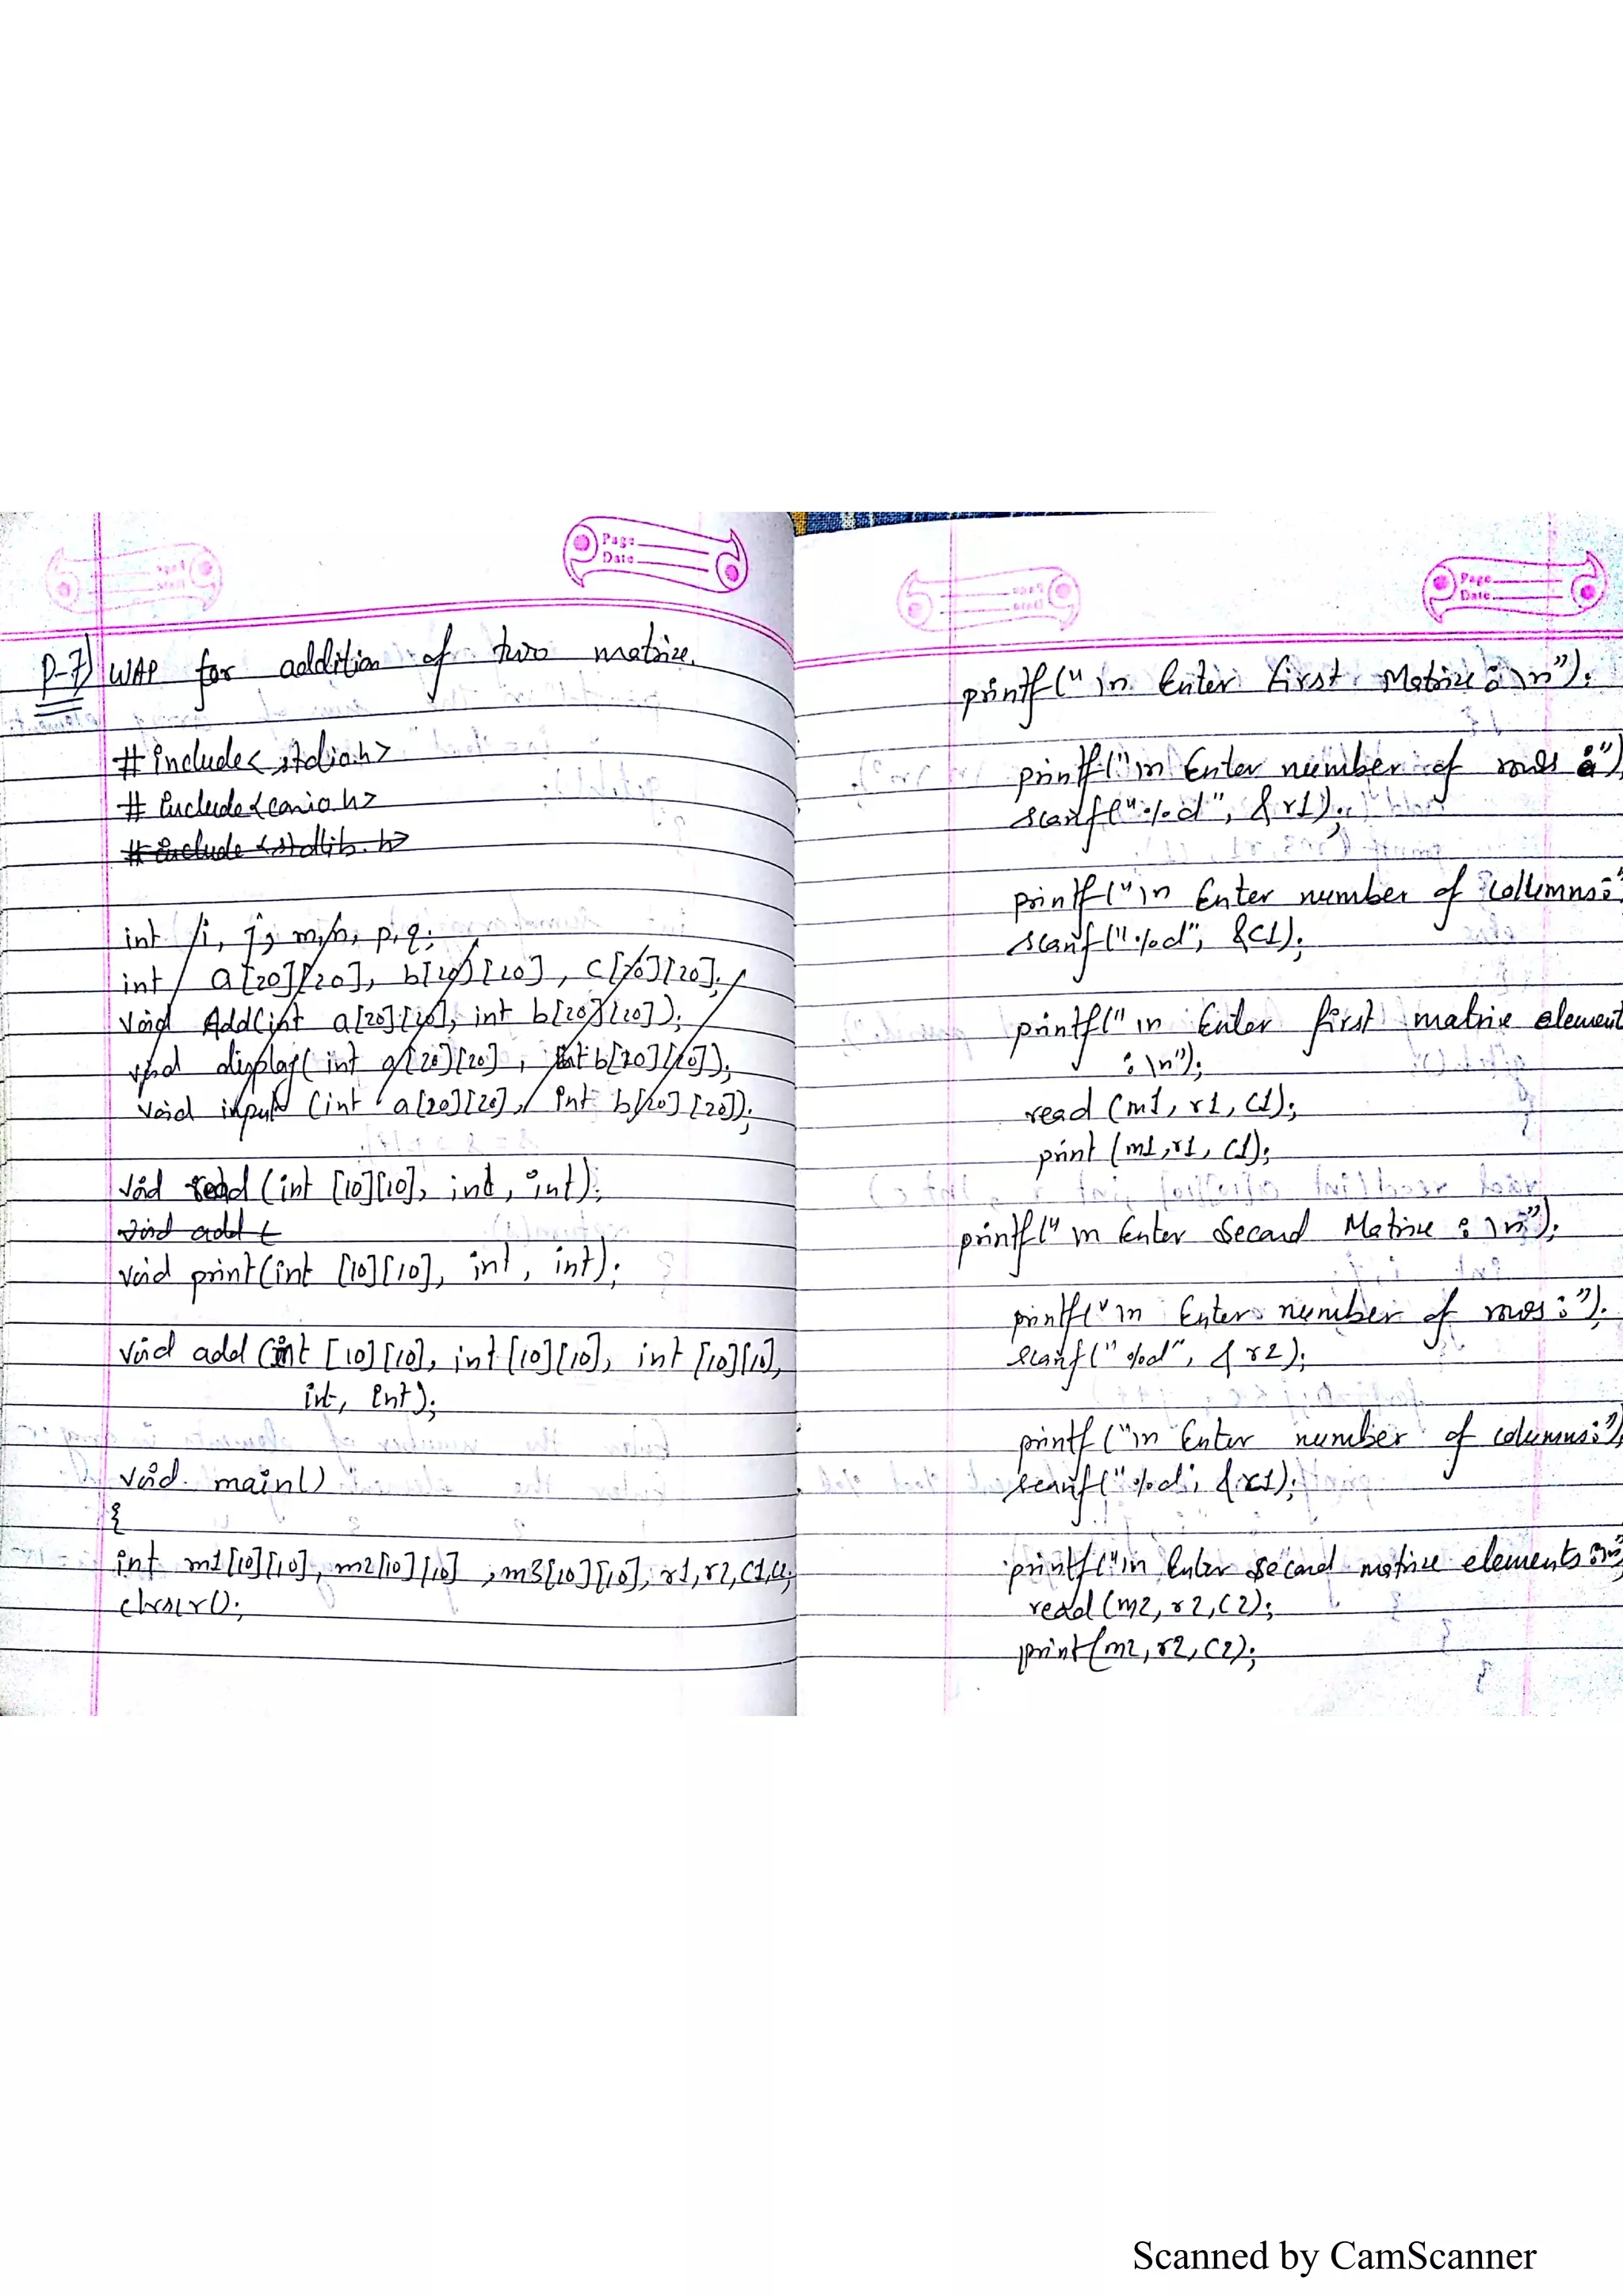 Page
Date
P-7) WAP for addition of two matrix.
#include<stdio.h>
#include<conio.h>
#include<stdlib.h>
int i, j, m, n, p, q;
int a[20][20], b[20][20], c[20][20];
void Add(int a[20][20], int b[20][20]);
void display(int a[20][20], int b[20][20]);
void input (int a[20][20], int b[20][20]);
void read (int [10][10], int, int);
void add (
void print(int [10][10], int, int);
void add (int [10][10], int [10][10], int [10][10],
int, int);
void main()
{
int m1[10][10], m2[10][10], m3[10][10], r1, r2, c1, c2;
clrscr();
Page
Date
printf("\n Enter First Matrix : \n");
printf("\n Enter number of rows :")
scanf("%d", &r1);
printf("\n Enter number of collumns:"
scanf("%d", &c1);
printf("\n Enter first matrix element
: \n");
read (m1, r1, c1);
print (m1, r1, c1);
printf("\n Enter Second Matrix : \n");
printf("\n Enter number of rows :");
scanf("%d", &r2);
printf("\n Enter number of columns:")
scanf("%d",
printf("\n Enter second matrix elements :\n"
read (m2, r2, c2);
print(m2, r2, c2);
Scanned by CamScanner